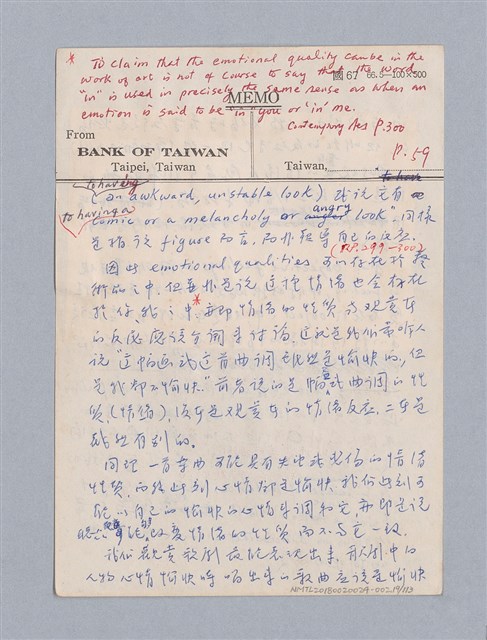 * To claim that the emotional quality can be in the
work of art is not of course to say that the word
"in" is used in precisely the same sense as when an
emotion is said to be "in" you or 'in' me.
Contemporary Aes P.300
國 67 66. 5-100×500
MEMO
P.59
From
BANK OF TAIWAN
Taipei, Taiwan
Taiwan,
to having
to have
(an awkward, unstable look) 或說它有
to having a
comic or a melancholy or angry look" 同樣
是指該 figure 而言, 而非報導自己的反應.
(PP.299-300)
因此 emotional qualities 可以存在於藝
術品之中, 但並非是說這種情緒也會存在
於你我之中.* 亦即情緒的性質與觀賞者
的反應應該分開來討論. 這就是我們常聽人
說 "這幅畫或這首曲調雖然是愉快的, 但
是我卻不愉快." 前者說的是幅畫或曲調的性
質 (情緒), 後者是觀賞者的情緒反應. 二者是
截然有別的.
同理一首樂曲可能具有失出或悲傷的情緒
性質, 而我此刻心情卻是愉快 我們此刻可
能以自己的愉快的心情來調和它 亦即是說
可能改變情緒的性質 而不與它一致.
我們觀賞歌劇最能表現出來, 歌劇中的
人物心情愉快時唱出來的歌曲應該是愉快
NMTL20180020029-002 19/113